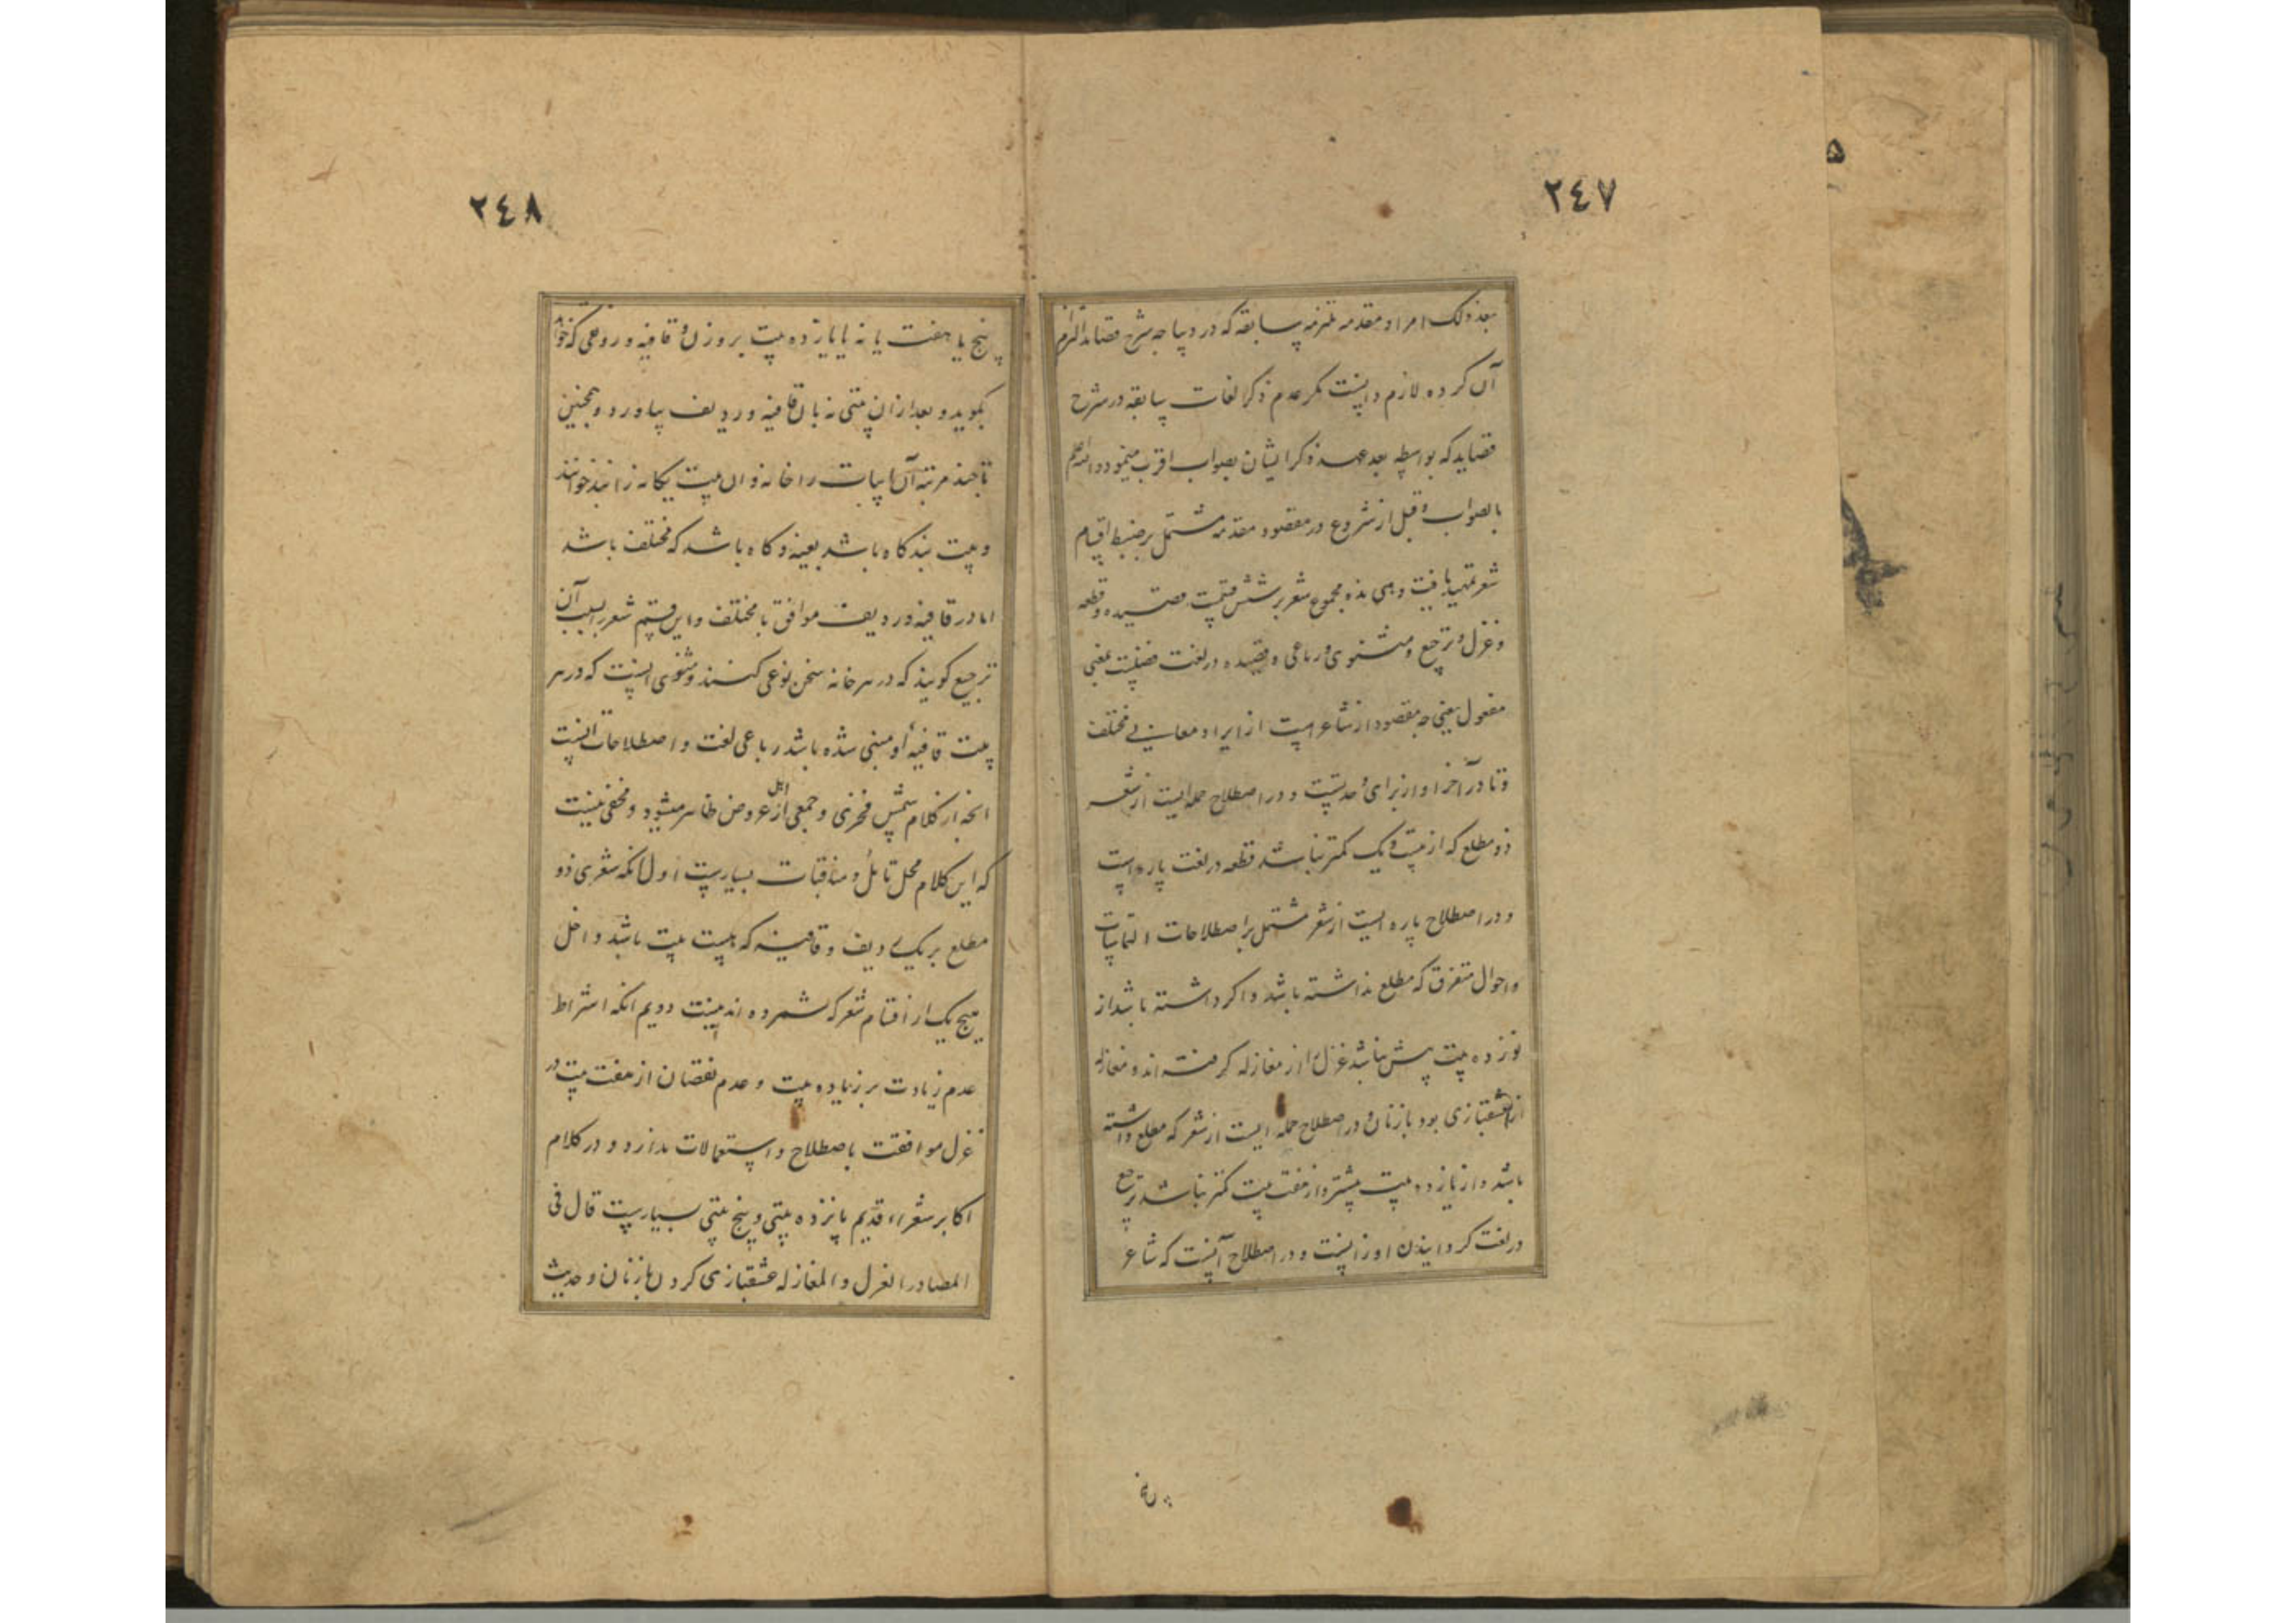 ٢٤٧
بعد ذلک امر او مقدمه ملتزمه سابقه که در دیباجه شرح قصاید التزام
آن کرده لازم دانست مکر عدم ذکر لغات سابقه در شرح
قصاید که بواسطه بعد عهد ذکر ایشان بصواب اقرب مینمود والله اعلم
بالصواب و قبل از شروع در مقصود مقدمه مشتمل بر ضبط اقسام
شعر تمهید یافت و هی هذه مجموع شعر بر شش قسمت قصیده و قطعه
و غزل و ترجیع و مثنوی و رباعی و قصیده در لغت فعیلست بمعنی
مفعول یعنی مقصود از شاعر است از ایراد معانی مختلف
و تا در آخر او از برای وحدتست و در اصطلاح جمله ایست از شعر
ذو مطلع که از بیست و یک کمتر نباشد قطعه در لغت پاره است
و در اصطلاح پاره ایست از شعر مشتمل بر اصطلاحات
و احوال متفرق که مطلع نداشته باشد و اکر داشته باشد از
نوزده بیت بیش نباشد غزل را از مغازله کرفته اند و مغازله
عشقبازی بود با زنان و در اصطلاح جمله ایست از شعر که مطلع داشته
باشد و از یازده بیت بیشتر و از هفت بیت کمتر نباشد ترجیع
در لغت کردانیدن اوازست و در اصطلاح آنست که شاعر
٢٤٨
پنج یا هفت یا نه یا یازده بیت بر وزن و قافیه و روی که خواهد
بکوید و بعد از ان بیتی نه بان قافیه و ردیف بیاورد و همچنین
تا چند مرتبه آن ابیات را خانه و ان بیت یکانه را بند خوانند
و بیت بند کاه باشد بعینه و کاه باشد که مختلف باشد
اما در قافیه و ردیف موافق یا مختلف و این قسم شعر را بسبب آن
ترجیع کویند که در هر خانه سخن نوعی کنند و مثنوی انست که در هر
بیت قافیهٔ او مبنی شده باشد رباعی لغت و اصطلاحات انست
انچه از کلام شمس فخری و جمعی از اهل عروض ظاهر میشود و مخفی نیست
که این کلام محل تامل و مناقشات بسیارست اول انکه شعری ذو
مطلع بر یک ردیف و قافیه که بیست بیت باشد داخل
هیچ یک از اقسام شعر که شمرده اند نیست دویم انکه اشتراط
عدم زیادت بر یازده بیت و عدم نقصان از هفت بیت در
غزل موافقت با اصطلاح و استعمالات ندارد و در کلام
اکابر شعراء قدیم پانزده بیتی و پنج بیتی بسیارست قال فی
المصادر الغزل و المغازله عشقبازی کردن با زنان و حدیث